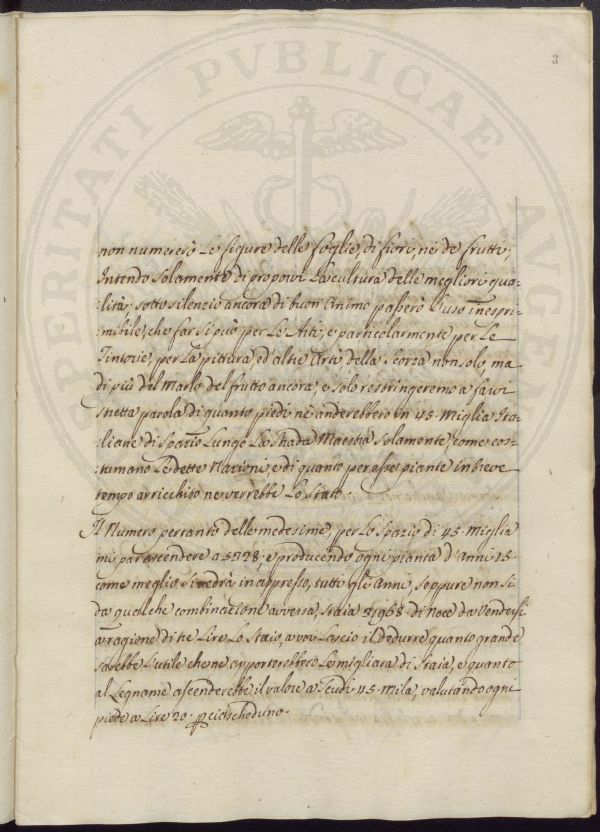 3
PERITATI PUBLICAE AUGEN
non numererò Le figure delle foglie, di fiori, nè de frutti;
Intendo Solamente di proporvi La cultura delle megliori qua-
:lità; sotto silenzio ancora di buon animo passerò L'uso inespri-
:mibile, che far si può per Le Arti, e particolarmente per Le
Tintorie, per La pittura, ed altre Arti della Scorza non solo, ma
di più del Marlo del frutto ancora, e solo restringeremo a farvi
stretta parola di quanto piedi nè anderebbero in 45. Miglia Ita-
:liane di Spazio Lungo La strada Maestra Solamente, come cos-
:tumano Le dette Nazioni, e di quanto per esse piante in breve
tempo arricchito ne verrebbe Lo Stato.
Il Numero pertanto delle medesime, per Lo Spazio di 45. Miglia
mi par ascendere a 5328; e producendo ogni pianta d'anni 15.
come meglio Si vedrà in appresso, tutti gli Anni, seppure non si
dà qualche combinazione avversa, Staia 31968 di Noce da Vendersi
a ragione di tre Lire Lo Staio, a voi Lascio il dedurre quanto grande
sarebbe L'utile che ne apporterebbero Le migliara di Staia, e quanto
al Legname ascenderebbe il valore a Scudi 45. Mila, valutando ogni
piede a Lire 20. per ciascheduno.